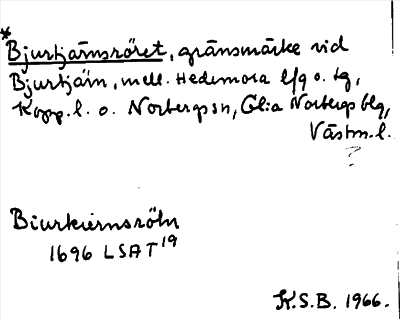 *Bjurtjärnsröret, gränsmärke vid
Bjurtjärn, mell. Hedemora lfg o. tg,
Kopp. l. o. Norbergs sn, Gla Norbergs blg,
Västm. l.
?
Biurkiernsröhn
1696 LSA T19
K.S.B. 1966.